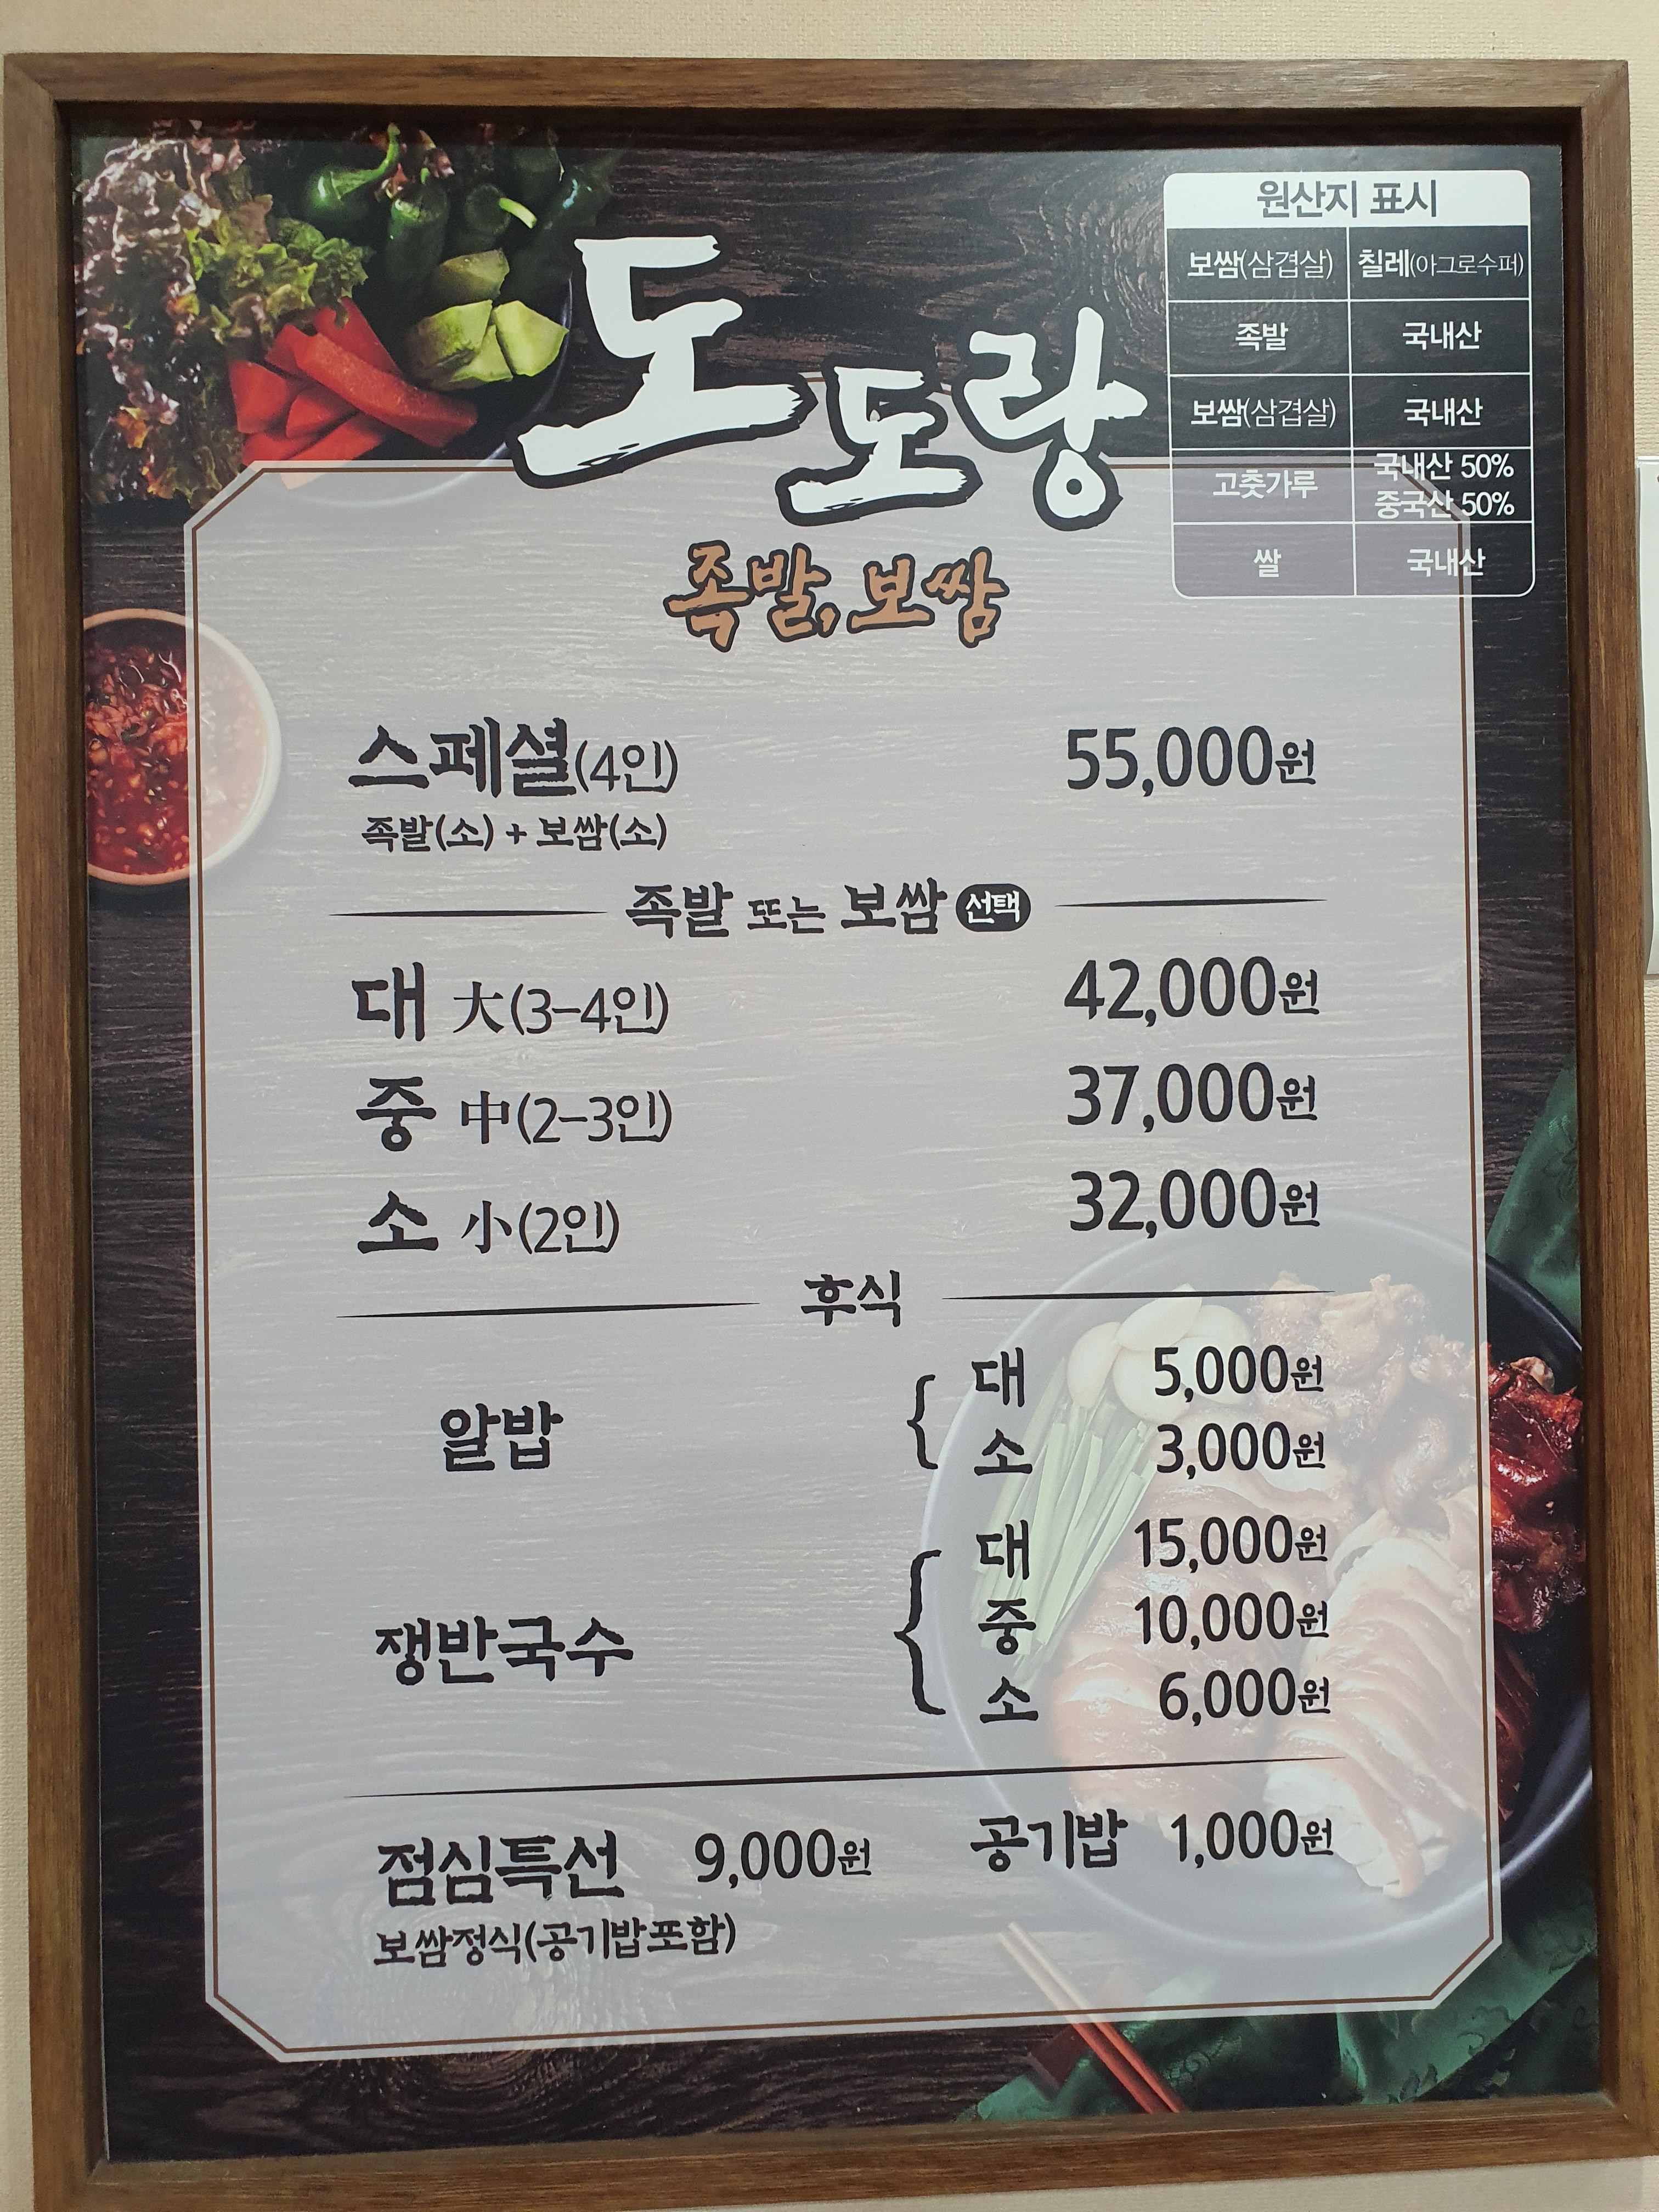 원산지 표시
보쌈(삼겹살) 칠레(아그로수퍼)
족발 국내산
보쌈(삼겹살) 국내산
고춧가루 국내산 50% 중국산 50%
쌀 국내산
도도랑
족발, 보쌈
스페셜(4인) 55,000원
족발(소) + 보쌈(소)
족발 또는 보쌈 선택
대 大(3-4인) 42,000원
중 中(2-3인) 37,000원
소 小(2인) 32,000원
후식
알밥 { 대 5,000원
소 3,000원
쟁반국수 { 대 15,000원
중 10,000원
소 6,000원
점심특선 9,000원 공기밥 1,000원
보쌈정식(공기밥포함)